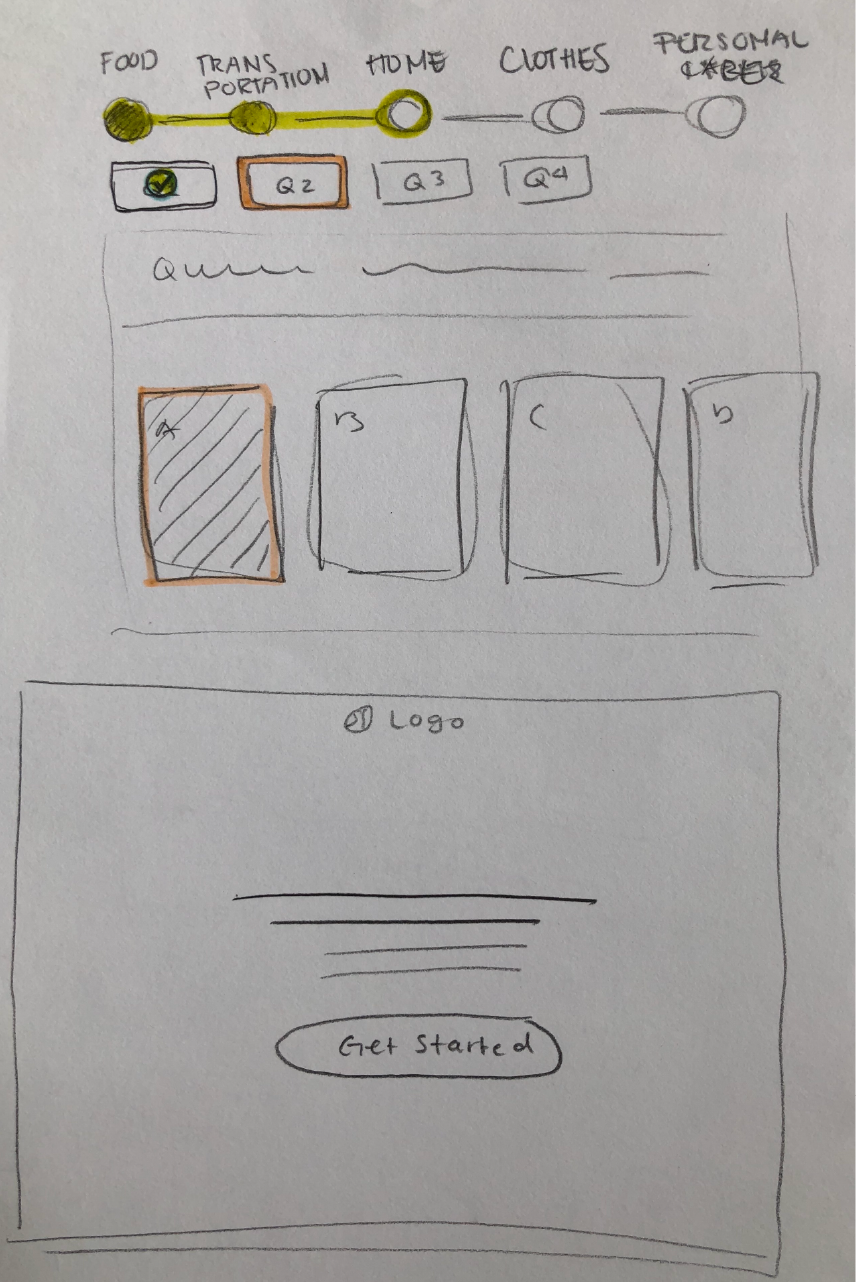 FOOD
TRANS
PORTATION
HOME
CLOTHES
PERSONAL
Q2
Q3
Q4
A
B
C
D
Logo
Get Started